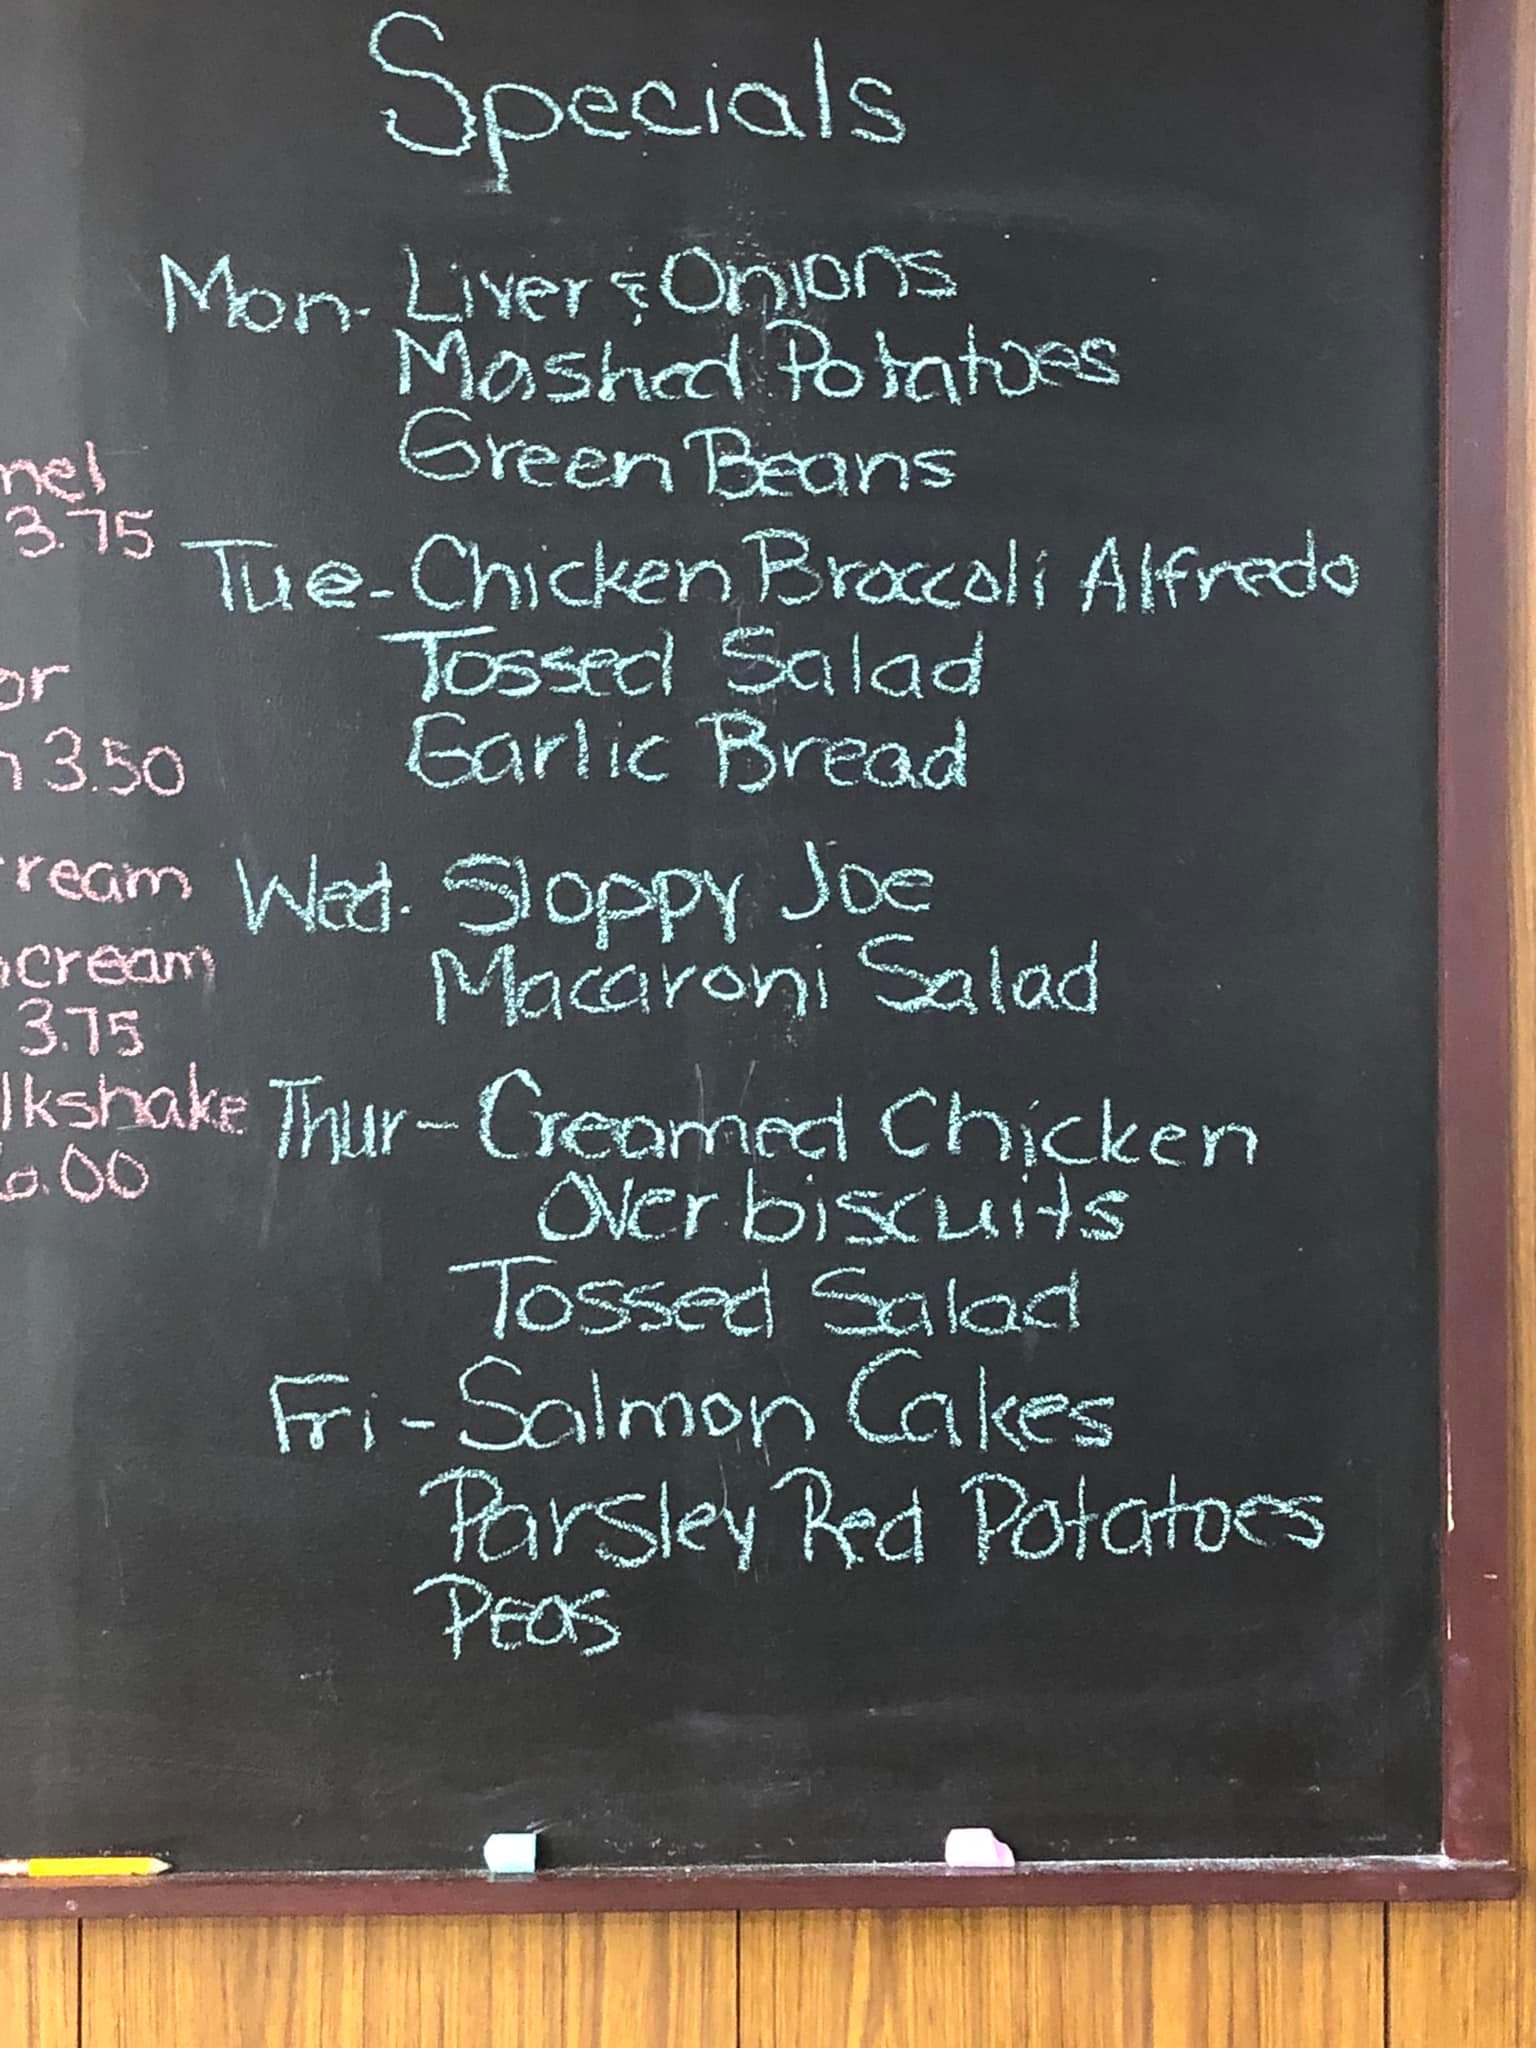 Specials
Mon- Liver & Onions
Mashed Potatoes
Green Beans
Tue- Chicken Broccoli Alfredo
Tossed Salad
Garlic Bread
Wed. Sloppy Joe
Macaroni Salad
Thur- Creamed Chicken
Over biscuits
Tossed Salad
Fri- Salmon Cakes
Parsley Red Potatoes
Peas
nel
3.75
or
3.50
ream
cream
3.75
lkshake
6.00